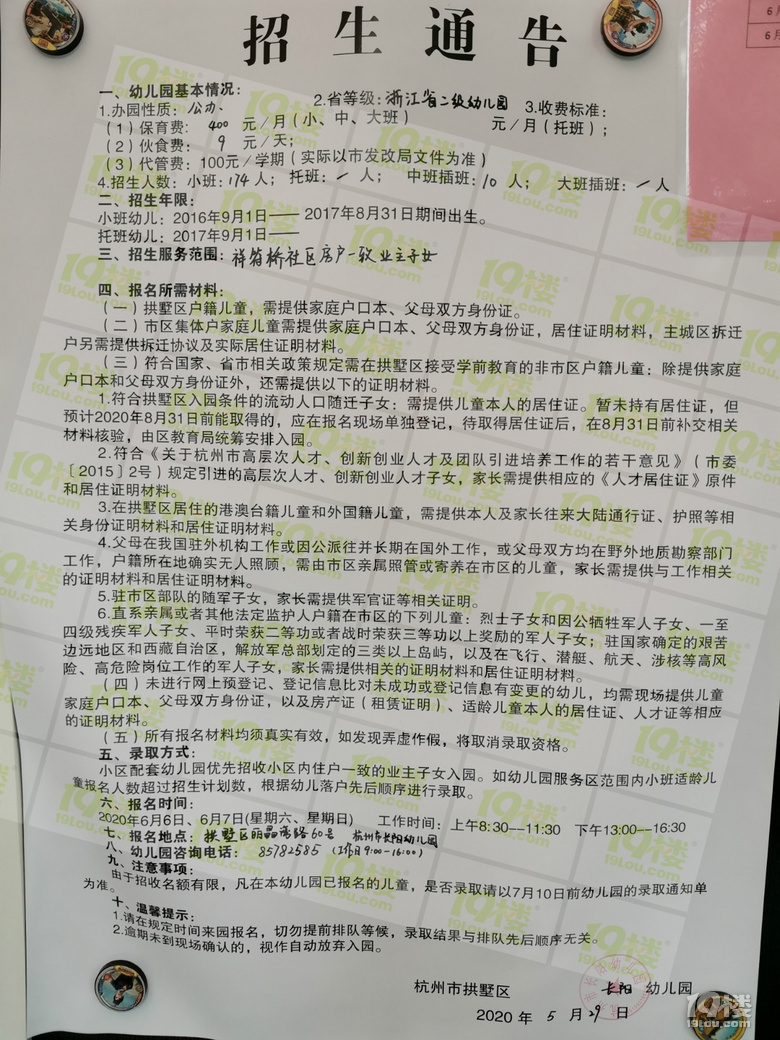 招生通告
一、幼儿园基本情况:
1.办园性质: 公办、 2.省等级: 浙江省二级幼儿园 3.收费标准:
（1）保育费: 400 元/月(小、中、大班) 元/月(托班);
（2）伙食费: 9 元/天;
（3）代管费: 100元/学期(实际以市发改局文件为准)
4.招生人数: 小班: 174人; 托班: / 人; 中班插班: 10 人; 大班插班: / 人
二、招生年限:
小班幼儿: 2016年9月1日—— 2017年8月31日期间出生。
托班幼儿: 2017年9月1日——
三、招生服务范围: 祥符桥社区房户一致业主子女
四、报名所需材料:
（一）拱墅区户籍儿童，需提供家庭户口本、父母双方身份证。
（二）市区集体户家庭儿童需提供家庭户口本、父母双方身份证，居住证明材料，主城区拆迁
户另需提供拆迁协议及实际居住证明材料。
（三）符合国家、省市相关政策规定需在拱墅区接受学前教育的非市区户籍儿童: 除提供家庭
户口本和父母双方身份证外，还需提供以下的证明材料。
1.符合拱墅区入园条件的流动人口随迁子女: 需提供儿童本人的居住证。暂未持有居住证，但
预计2020年8月31日前能取得的，应在报名现场单独登记，待取得居住证后，在8月31日前补交相关
材料核验，由区教育局统筹安排入园。
2.符合《关于杭州市高层次人才、创新创业人才及团队引进培养工作的若干意见》（市委
〔2015〕2号）规定引进的高层次人才、创新创业人才子女，家长需提供相应的《人才居住证》原件
和居住证明材料。
3.在拱墅区居住的港澳台籍儿童和外国籍儿童，需提供本人及家长往来大陆通行证、护照等相
关身份证明材料和居住证明材料。
4.父母在我国驻外机构工作或因公派往并长期在国外工作，或父母双方均在野外地质勘察部门
工作，户籍所在地确实无人照顾，需由市区亲属照管或寄养在市区的儿童，家长需提供与工作相关
的证明材料和居住证明材料。
5.驻市区部队的随军子女，家长需提供军官证等相关证明。
6.直系亲属或者其他法定监护人户籍在市区的下列儿童: 烈士子女和因公牺牲军人子女、一至
四级残疾军人子女、平时荣获二等功或者战时荣获三等功以上奖励的军人子女；驻国家确定的艰苦
边远地区和西藏自治区，解放军总部划定的三类以上岛屿，以及在飞行、潜艇、航天、涉核等高风
险、高危险岗位工作的军人子女，家长需提供相关的证明材料和居住证明材料。
（四）未进行网上预登记、登记信息比对未成功或登记信息有变更的幼儿，均需现场提供儿童
家庭户口本、父母双方身份证，以及房产证（租赁证明）、适龄儿童本人的居住证、人才证等相应
的证明材料。
（五）所有报名材料均须真实有效，如发现弄虚作假，将取消录取资格。
五、录取方式:
小区配套幼儿园优先招收小区内住户一致的业主子女入园。如幼儿园服务区范围内小班适龄儿
童报名人数超过招生计划数，根据幼儿落户先后顺序进行录取。
六、报名时间:
2020年6月6日、6月7日(星期六、星期日) 工作时间: 上午8:30--11:30 下午13:00--16:30
七、报名地点: 拱墅区丽晶湾路60号 杭州市长阳幼儿园
八、幼儿园咨询电话: 85782585 (工作日9:00-16:00)
九、注意事项:
由于招收名额有限，凡在本幼儿园已报名的儿童，是否录取请以7月10日前幼儿园的录取通知单
为准。
十、温馨提示:
1.请在规定时间来园报名，切勿提前排队等候，录取结果与排队先后顺序无关。
2.逾期未到现场确认的，视作自动放弃入园。
杭州市拱墅区 长阳 幼儿园
2020 年 5 月 29 日
19楼
19Lou.com